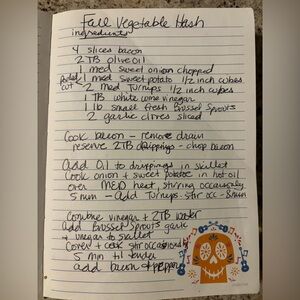 Fall Vegetable Hash
ingredients
4 slices bacon
2 TB olive oil
1 med sweet onion chopped
Peeled cut
1 med sweet potato 1/2 inch cubes
2 med Turnips 1/2 inch cubes
1 TB white wine vinegar
1 lb small fresh Brussel Sprouts
2 garlic cloves sliced
Cook bacon - remove drain
reserve 2TB drippings - chop bacon
Add Oil to drippings in skillet
Cook onion + sweet potatoe in hot oil
over MED heat, stirring occasionally
5 min - Add Turnips - stir occ - 8 min
Combine vinegar + 2TB water
Add Brussel Sprouts garlic
+ vinegar to skillet
Cover + cook stir occasionally
5 min til tender
add bacon + pepper